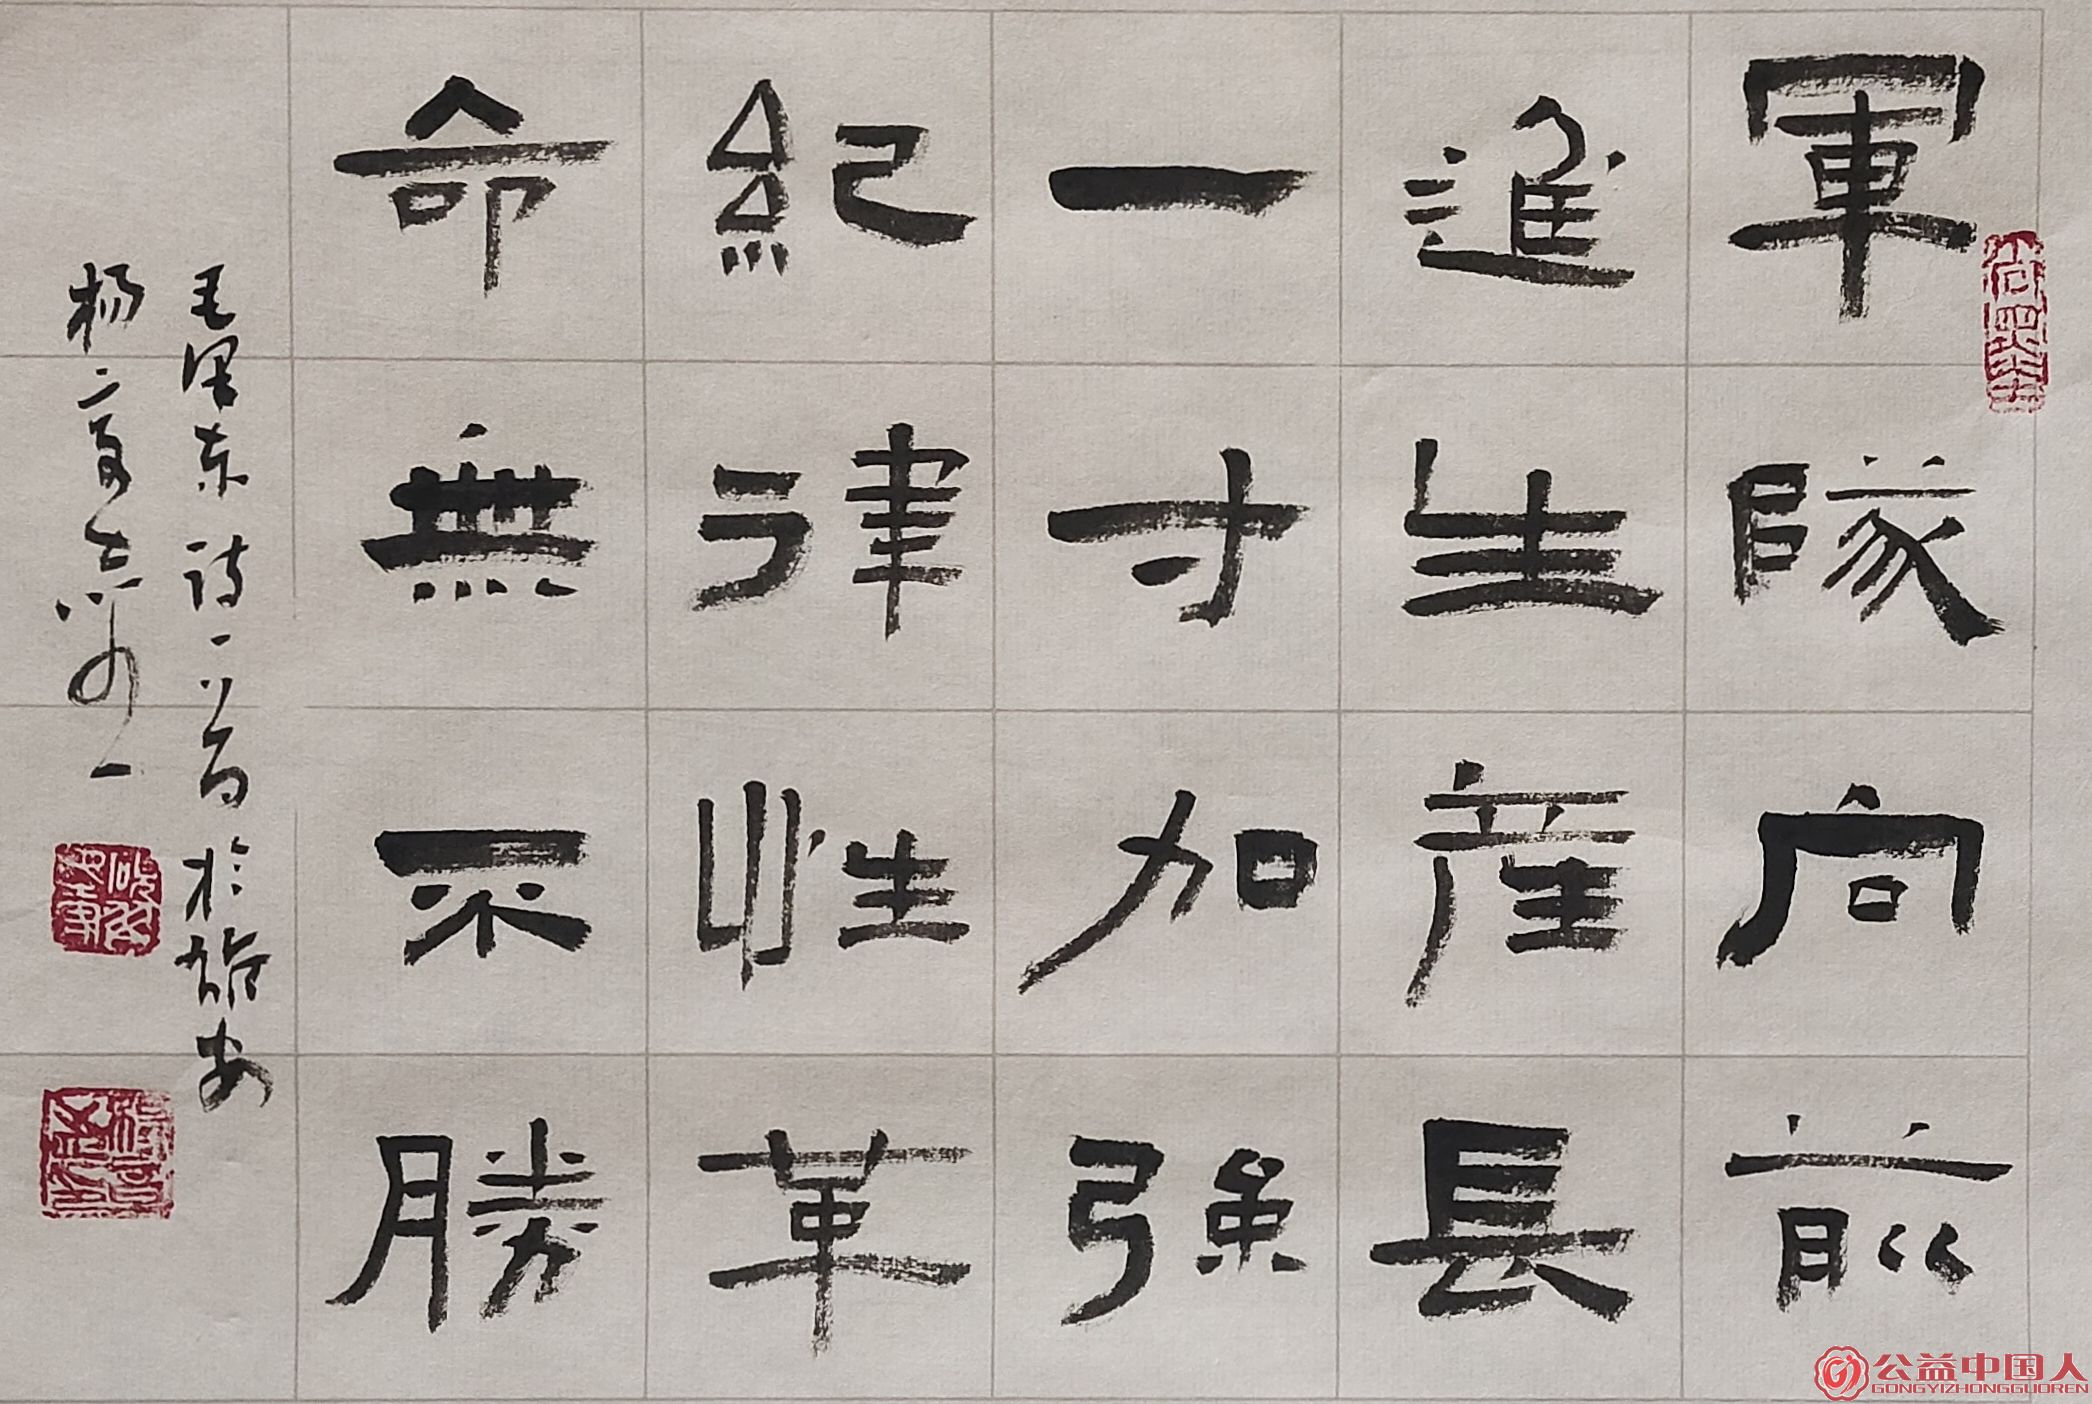 軍隊向前
進生產長
一寸加強
紀律性革
命無不勝
毛澤东诗一首於雄安
杨
公益中国人
GONGYIZHONGGUOREN